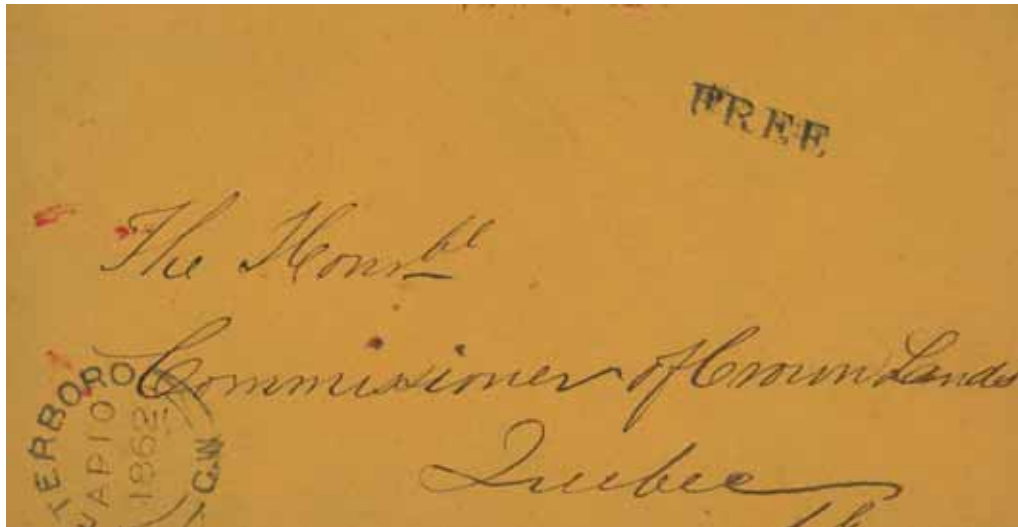 FREE
The Honr ble
Commissioner of Crown Lands
Quebec
TERBORO C.W
AP 10
1862